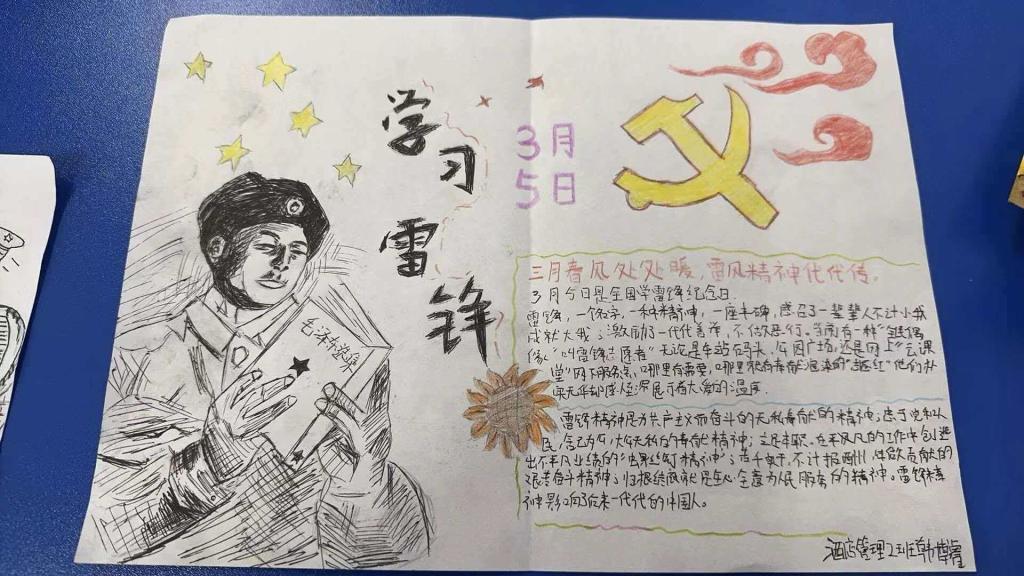 学习雷锋
3月
5日
毛泽东选集
三月春风处处暖,雷风精神代代传。
3月5日是全国学雷锋纪念日
雷锋,一个名字,一种精神,一座丰碑,感召了一辈辈人不计小我
成就大我;激励了一代代青年,不做恶行。当前有一种"
"叫雷锋志愿者"无论是车站码头,公园广场,还是网上"云课
堂"网下服务点,哪里有需要,哪里就有奉献
大爱的温度
雷锋精神是为共产主义而奋斗的无私奉献的精神;忠于党和人
民,舍己为公,大公无私的奉献精神;立足本职,在平凡的工作中创造
出不平凡业绩的"螺丝钉精神";苦干实干,不计报酬,
艰苦奋斗精神;归根结底就是全心全意为人民服务的精神。雷锋精
神影响了后来一代代的中国人。
酒店管理2班韩